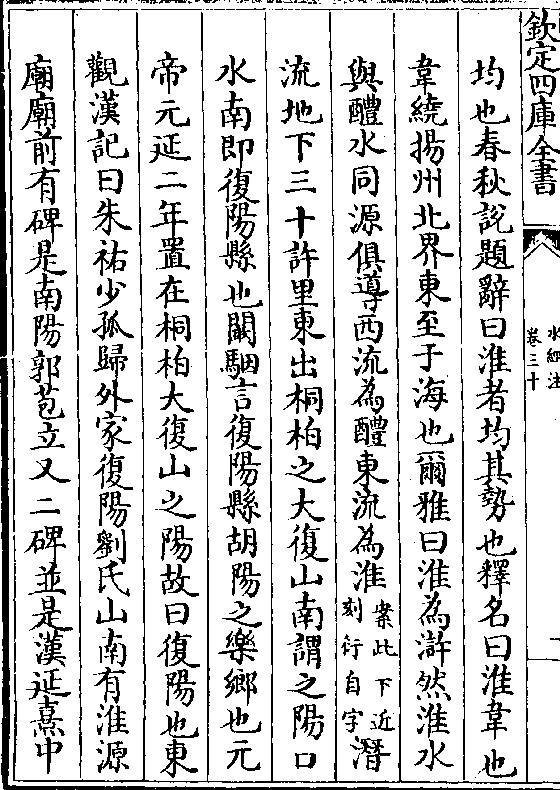 欽定四庫全書
水經注
卷三十
均也春秋説題辭曰淮者均其勢也釋名曰淮韋也
韋繞揚州北界東至于海也爾雅曰淮為滸然淮水
與醴水同源俱導西流為醴東流為淮案此下近刻衍自字潛
流地下三十許里東出桐柏之大復山南謂之陽口
水南即復陽縣也闞駰言復陽縣胡陽之樂鄉也元
帝元延二年置在桐柏大復山之陽故曰復陽也東
觀漢記曰朱祐少孤歸外家復陽劉氏山南有淮源
廟廟前有碑是南陽郭苞立又二碑並是漢延熹中